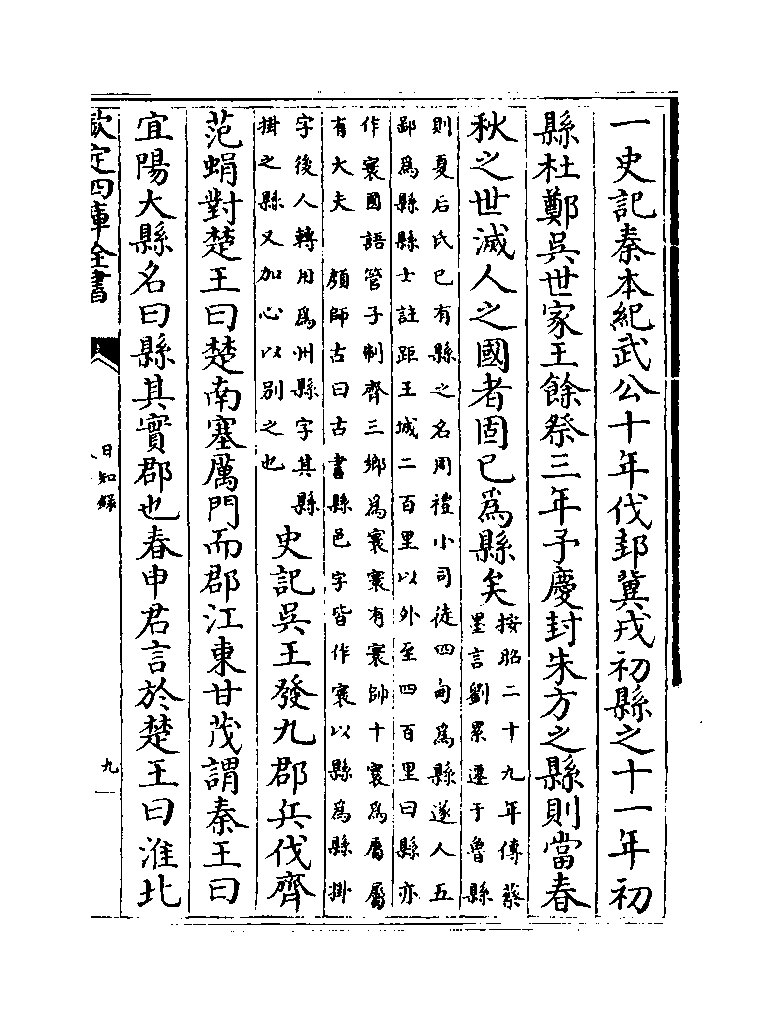 一史記秦本紀武公十年伐邽冀戎初縣之十一年初
縣杜鄭吳世家王餘祭三年予慶封朱方之縣則當春
秋之世滅人之國者固已爲縣矣按昭二十九年傳蔡
墨言劉累遷于魯縣
則夏后氏已有縣之名周禮小司徒四甸爲縣遂人五
鄙爲縣縣士註距王城二百里以外至四百里曰縣亦
作寰國語管子制齊三鄉爲寰寰有寰帥十寰爲屬屬
有大夫　顔師古曰古書縣邑字皆作寰以縣爲縣掛
字後人轉用爲州縣字其縣
掛之縣又加心以別之也
史記吳王發九郡兵伐齊
范蜎對楚王曰楚南塞厲門而郡江東甘茂謂秦王曰
宜陽大縣名曰縣其實郡也春申君言於楚王曰淮北
欽定四庫全書
日知錄
九